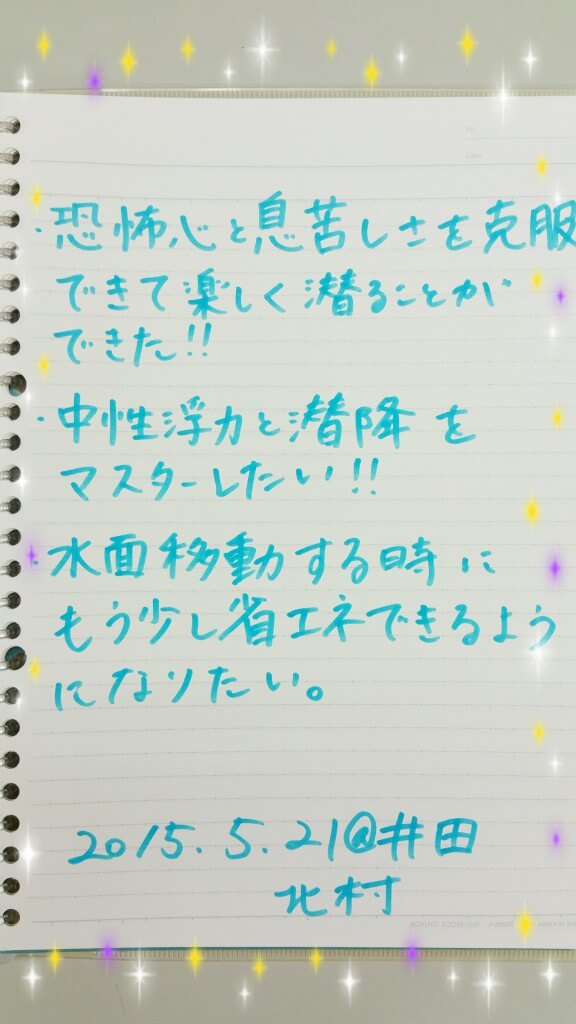 No.
Date
・恐怖心と息苦しさを克服
できて楽しく潜ることが
できた!!
・中性浮力と潜降を
マスターしたい!!
・水面移動する時に
もう少し省エネできるよう
になりたい。
2015.5.21@井田
北村
KOKUYO LOOSE-LEAF